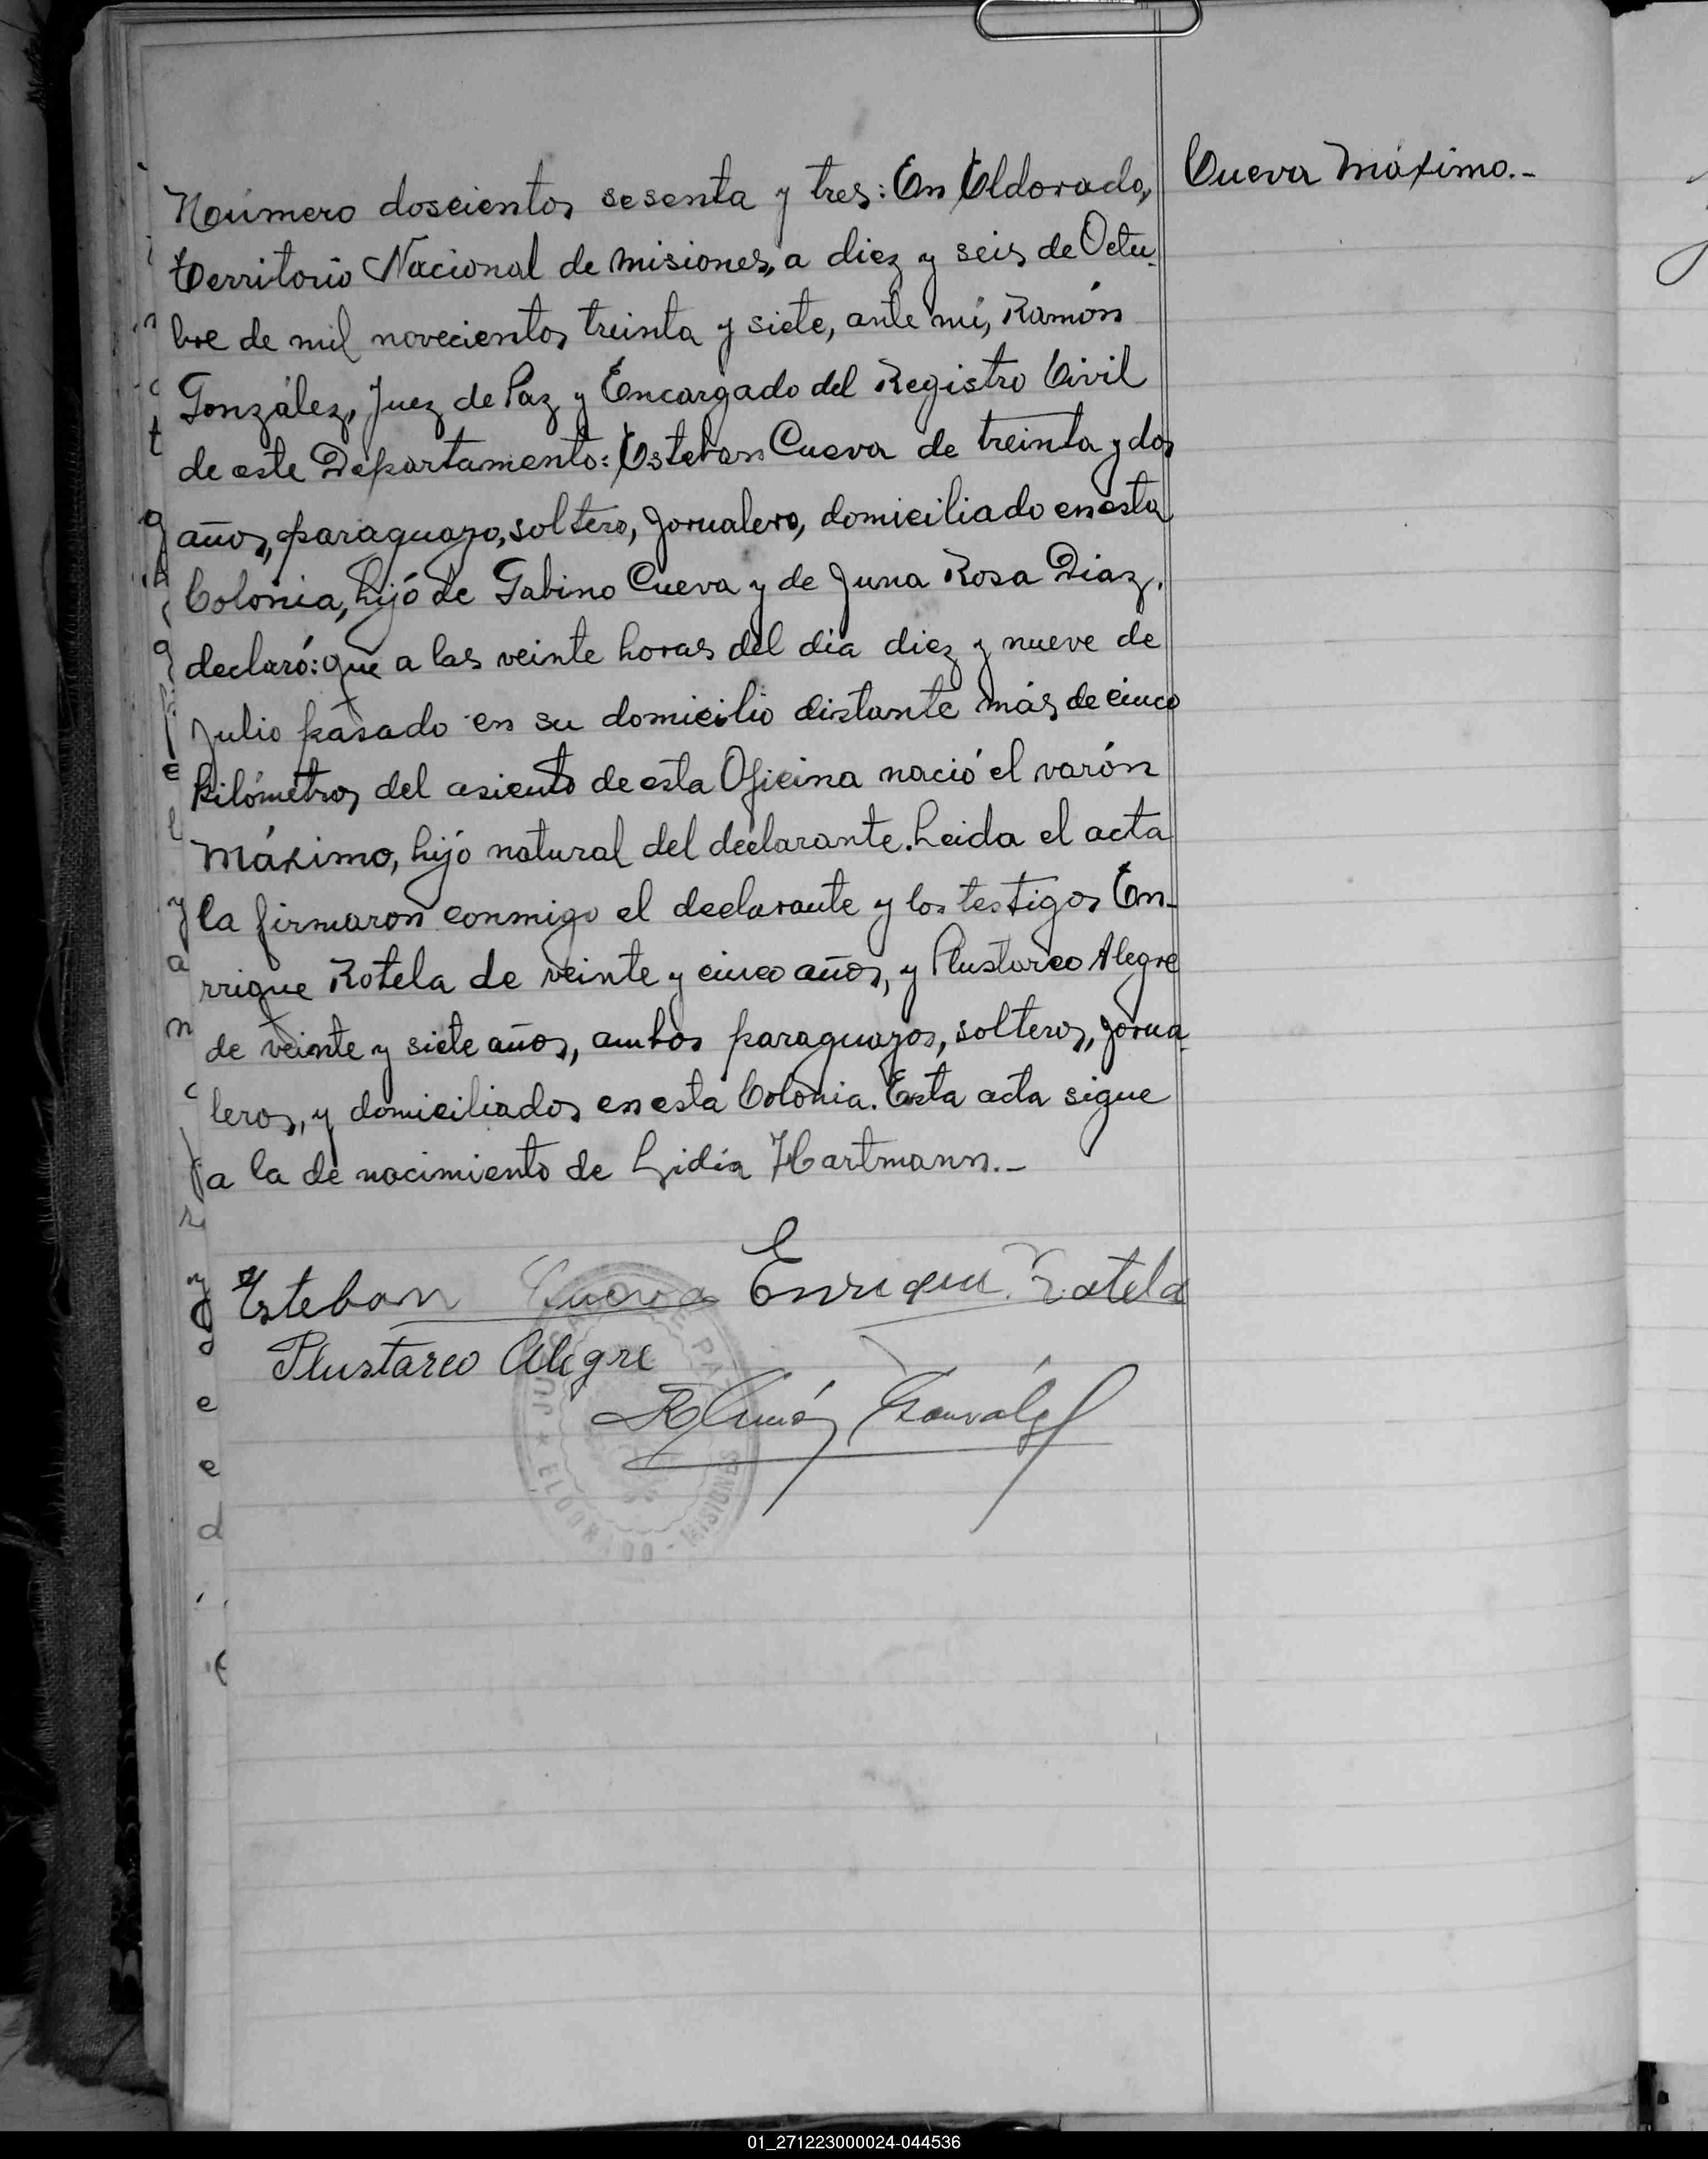 Noúmero doscientos sesenta y tres: En Eldorado,
Cueva Máximo.-
Territorio Nacional de Misiones, a diez y seis de Octu-
bre de mil novecientos treinta y siete, ante mí, Ramón
González, Juez de Paz y Encargado del Registro Civil
de este Departamento: Esteban Cueva de treinta y dos
años, paraguayo, soltero, jornalero, domiciliado en esta
Colonia, hijo de Gabino Cueva y de Juna Rosa Diaz,
declaró: que a las veinte horas del dia diez y nueve de
Julio pasado en su domicilio distante más de cinco
kilómetros del asiento de esta Oficina nació el varón
Máximo, hijo natural del declarante. Leida el acta
la firmaron conmigo el declarante y los testigos En-
rrique Rotela de veinte y cinco años, y Plustarco Alegre
de veinte y siete años, ambos paraguayos, solteros, jorna-
leros, y domiciliados en esta Colonia. Esta acta sigue
a la de nacimiento de Lidia Hartmann.-
Esteban Cueva Enrique Rotela
Plustarco Alegre
Ramón González
JUZGADO DE PAZ
* ELDORADO - MISIONES
01_271223000024-044536